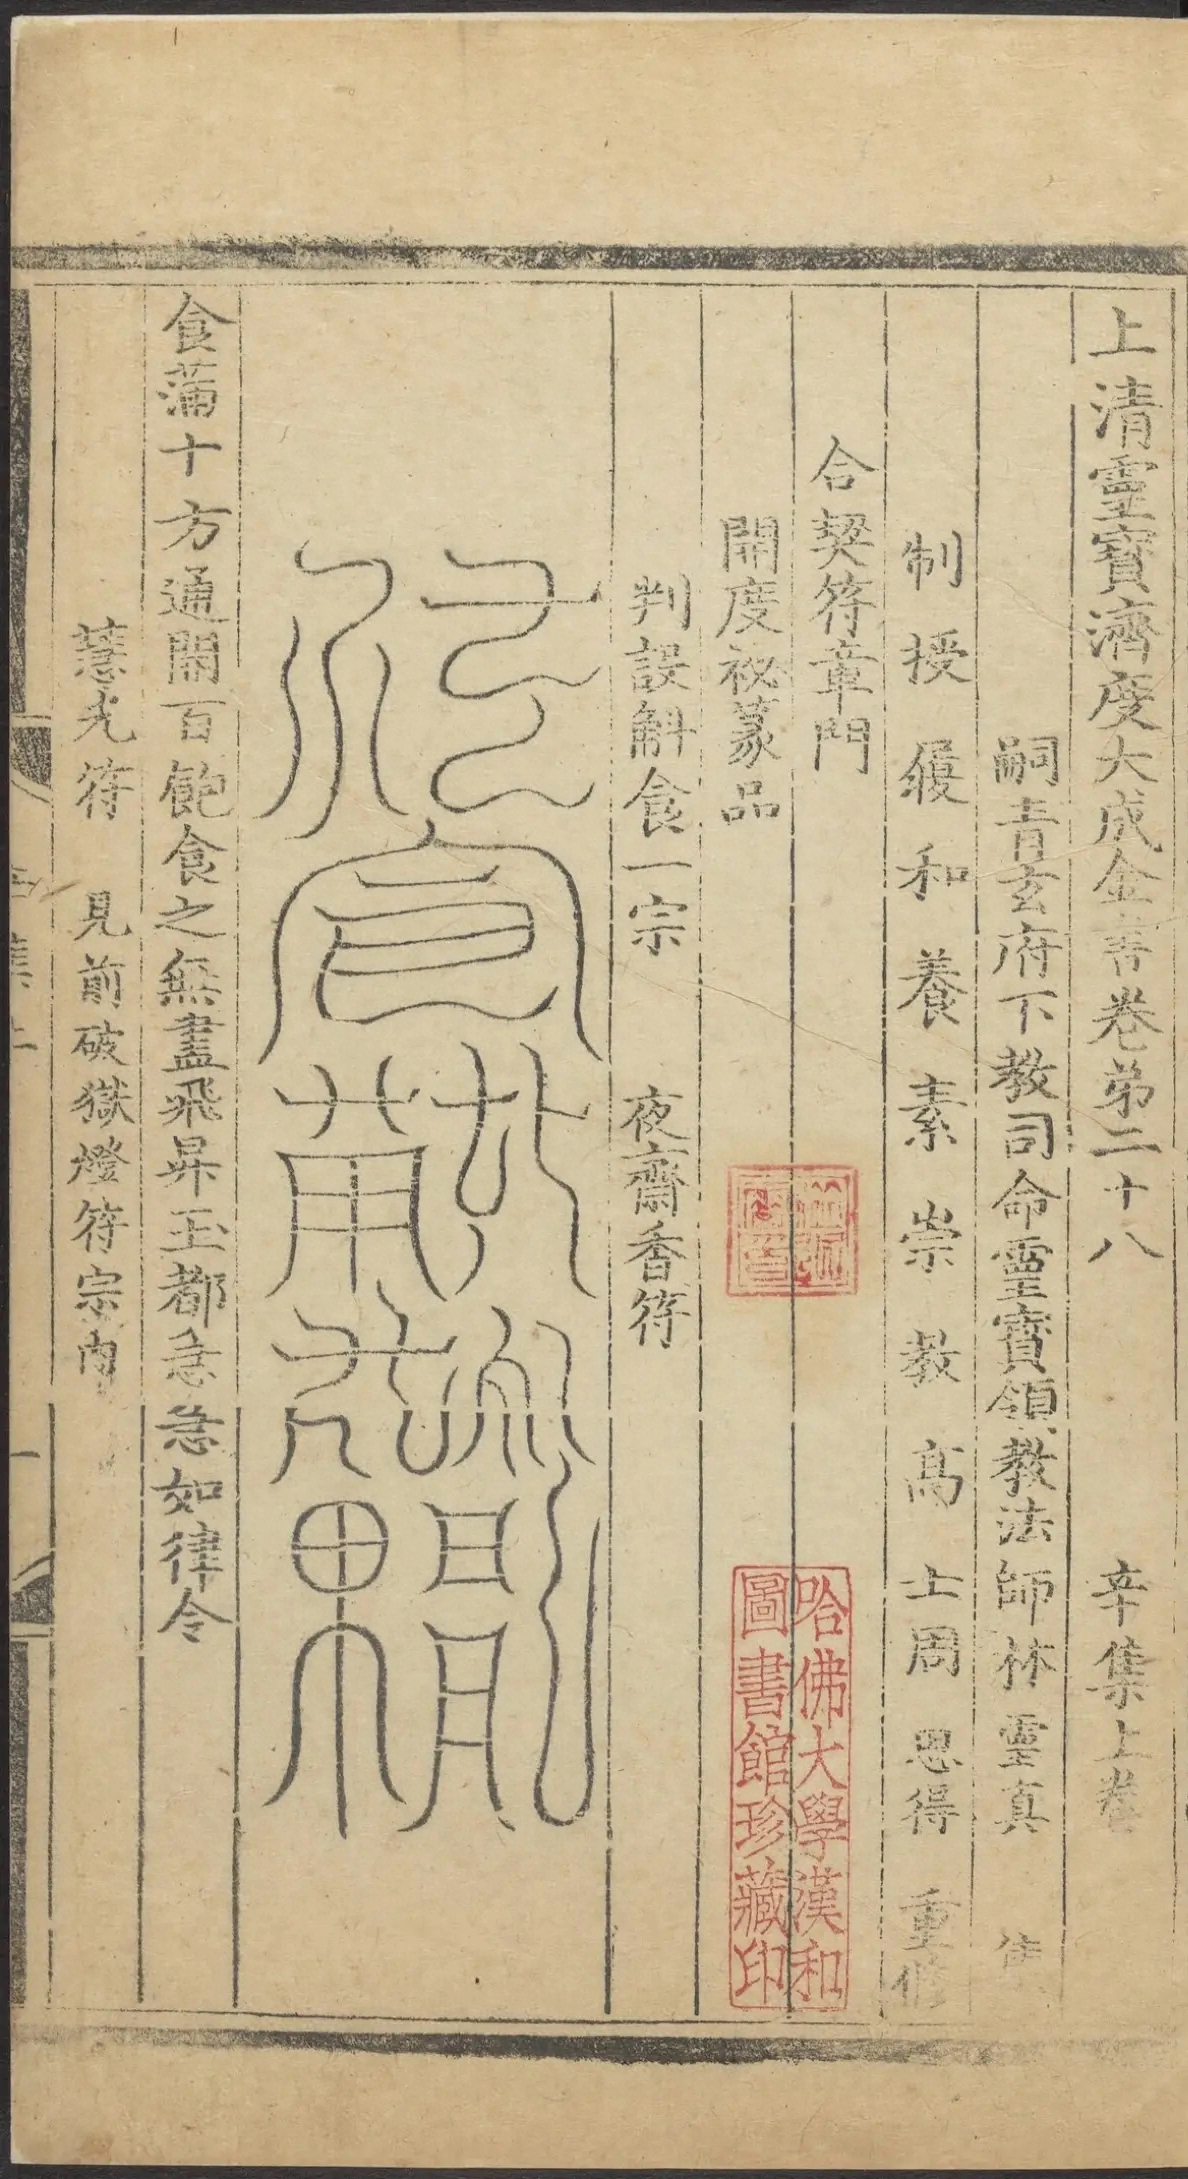 上清靈寶濟度大成金書卷弟二十八 辛集上卷
嗣青玄府下教司命靈寶領教法師林靈真
制授履和養素崇教高士周思得重修
合契符章門
開度祕篆品
判設斛食一宗 夜齋香符
食蒲十方通開百飽食之無盡飛昇玉都急急如律令
慧光符 見前破獄燈符宗內
哈佛大學漢和
圖書館珍藏印